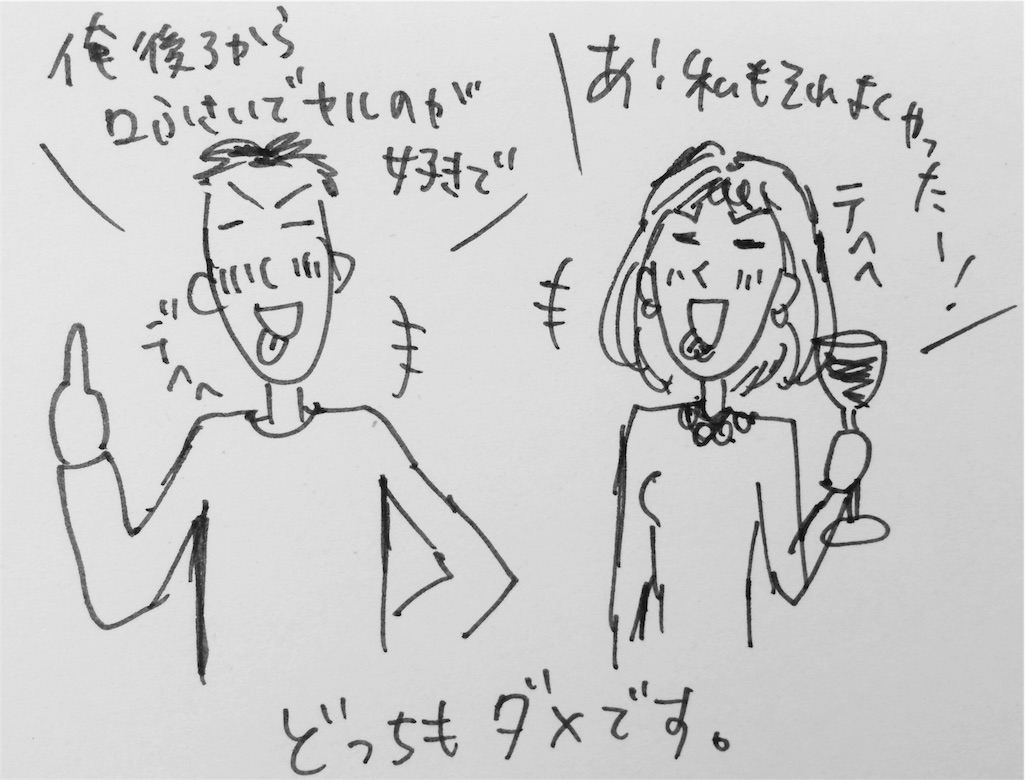 俺後ろから
口ふさいでヤルのが
好きで
デヘヘ
あ!私もそれよくやったー!
テヘヘ
どっちもダメです。